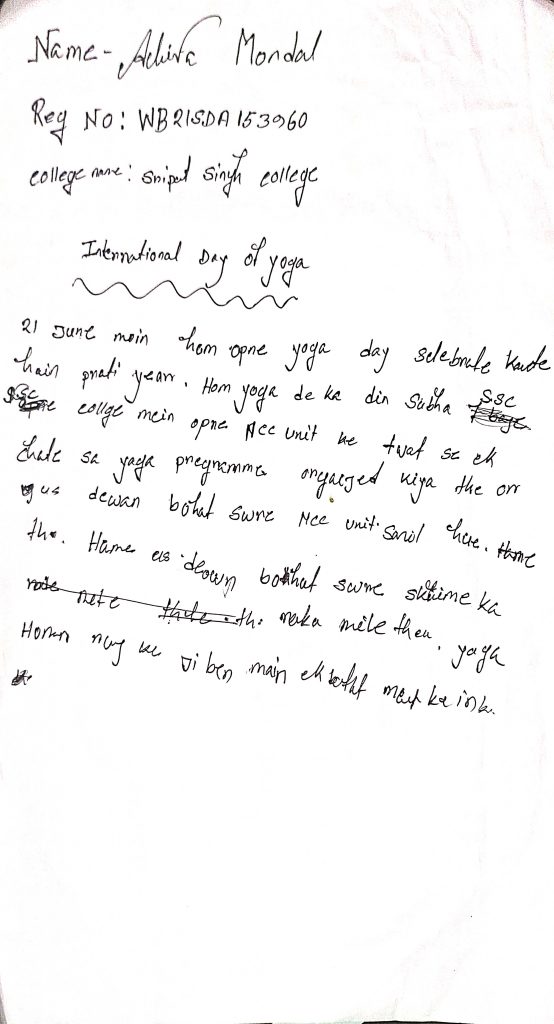 Name - Achiva Mondal
Reg No: WB21SDA153960
college name: sripat singh college
International Day of yoga
21 June mein hom opne yoga day selebrate karte
hain prati year. Hom yoga de ka din Subha
SSC
collge mein opne NCC unit ke traf se ek
chate sa yaga programme organized kiya the or
us dewan bohat sare NCC unit samil here.
the. Hame es deown bohat sare skhime ka
th. maka mile then. yaga
Homan ke ji ben main ek bohat ka ink.